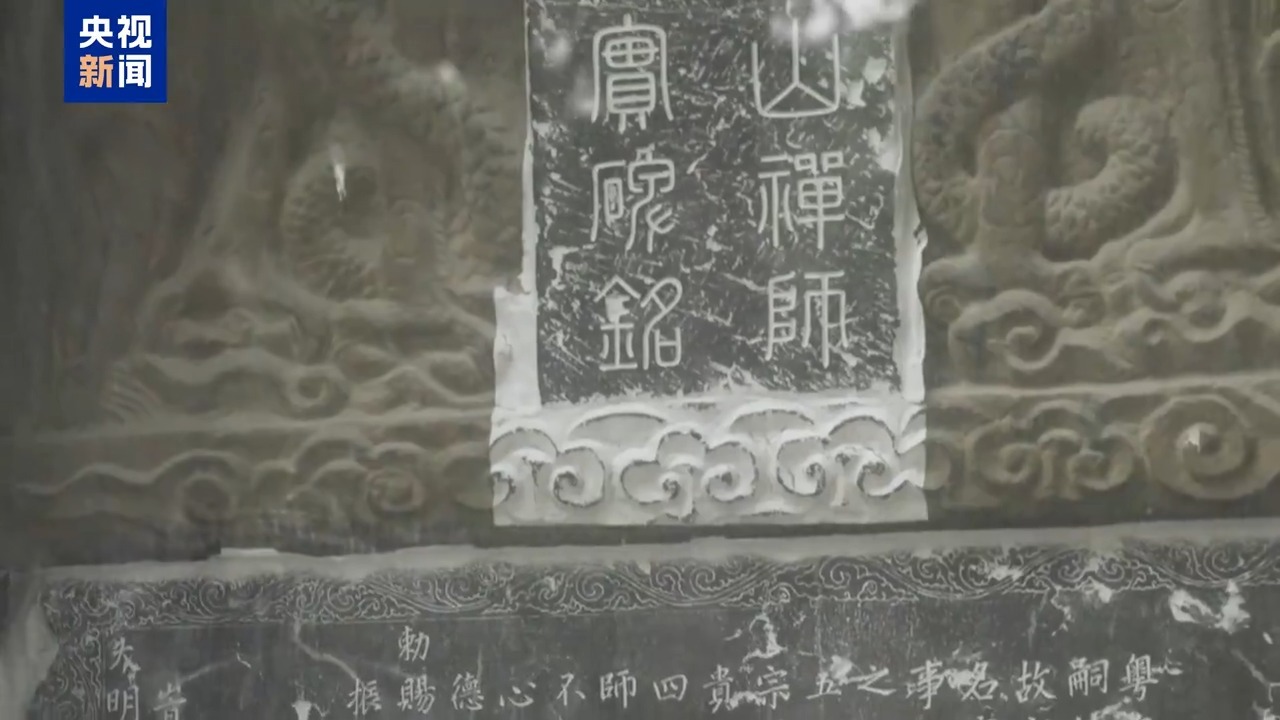 央视
新闻
山禪師
實碑銘
粤
嗣
故
名
事
之
五
宗
貴
四
師
不
心
德
勅賜
振
大明